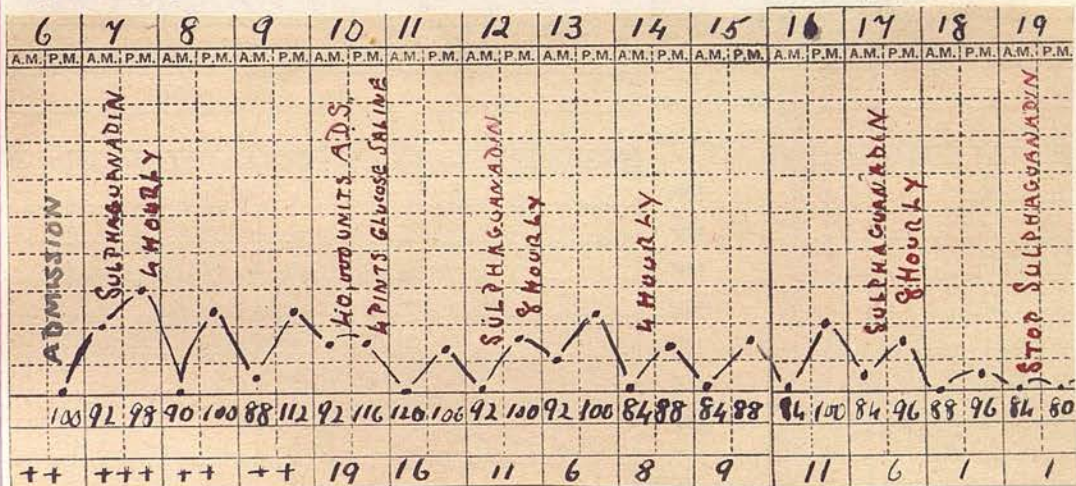 6 7 8 9 10 11 12 13 14 15 16 17 18 19
A.M. P.M. A.M. P.M. A.M. P.M. A.M. P.M. A.M. P.M. A.M. P.M. A.M. P.M. A.M. P.M. A.M. P.M. A.M. P.M. A.M. P.M. A.M. P.M. A.M. P.M. A.M. P.M.
ADMISSION
SULPHAGUANADIN
4 HOURLY
40,000 UNITS A.D.S.
4 PINTS GLUCOSE SALINE
SULPHAGUANADIN
8 HOURLY
4 HOURLY
SULPHAGUANADIN
8 HOURLY
STOP SULPHAGUANADIN
100 92 98 90 100 88 112 92 116 120 106 92 100 92 100 84 88 84 88 84 100 84 96 88 96 84 80
++ +++ ++ ++ 19 16 11 6 8 9 11 6 1 1